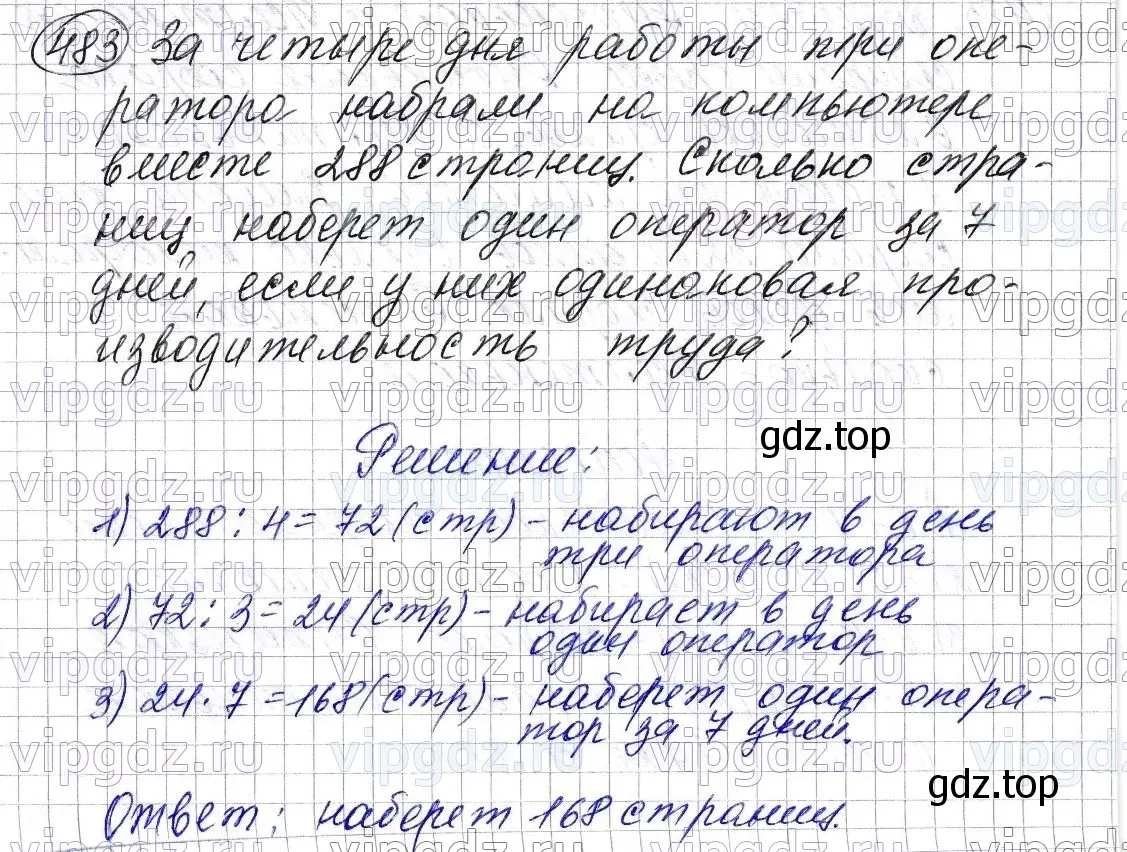 483 За четыре дня работы три опе-
ратора набрали на компьютере
вместе 288 страниц. Сколько стра-
ниц наберет один оператор за 7
дней, если у них одинаковая про-
изводительность труда?
Решение:
gdz.top
1) 288 : 4 = 72 (стр) - набирают в день
три оператора
2) 72 : 3 = 24 (стр) - набирает в день
один оператор
3) 24 · 7 = 168 (стр) - наберет один опера-
тор за 7 дней.
gdz.top
Ответ: наберет 168 страниц.
vipgdz.ru